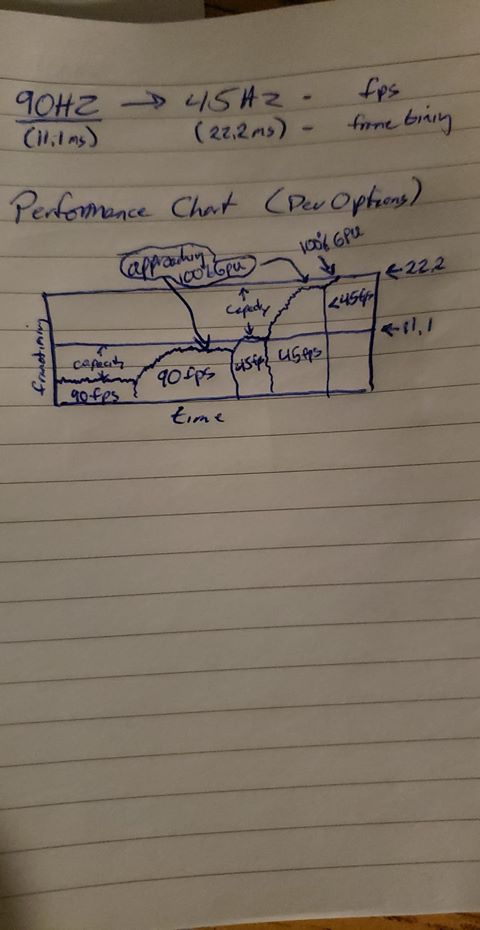 90HZ → 45HZ - fps
(11.1ms) (22.2ms) - frame timing
Performance Chart (Dev Options)
approaching
100% GPU
100% GPU
← 22.2
capacity
<45fps
← 11.1
frametiming
capacity
90 fps
45fps
45fps
90 fps
time